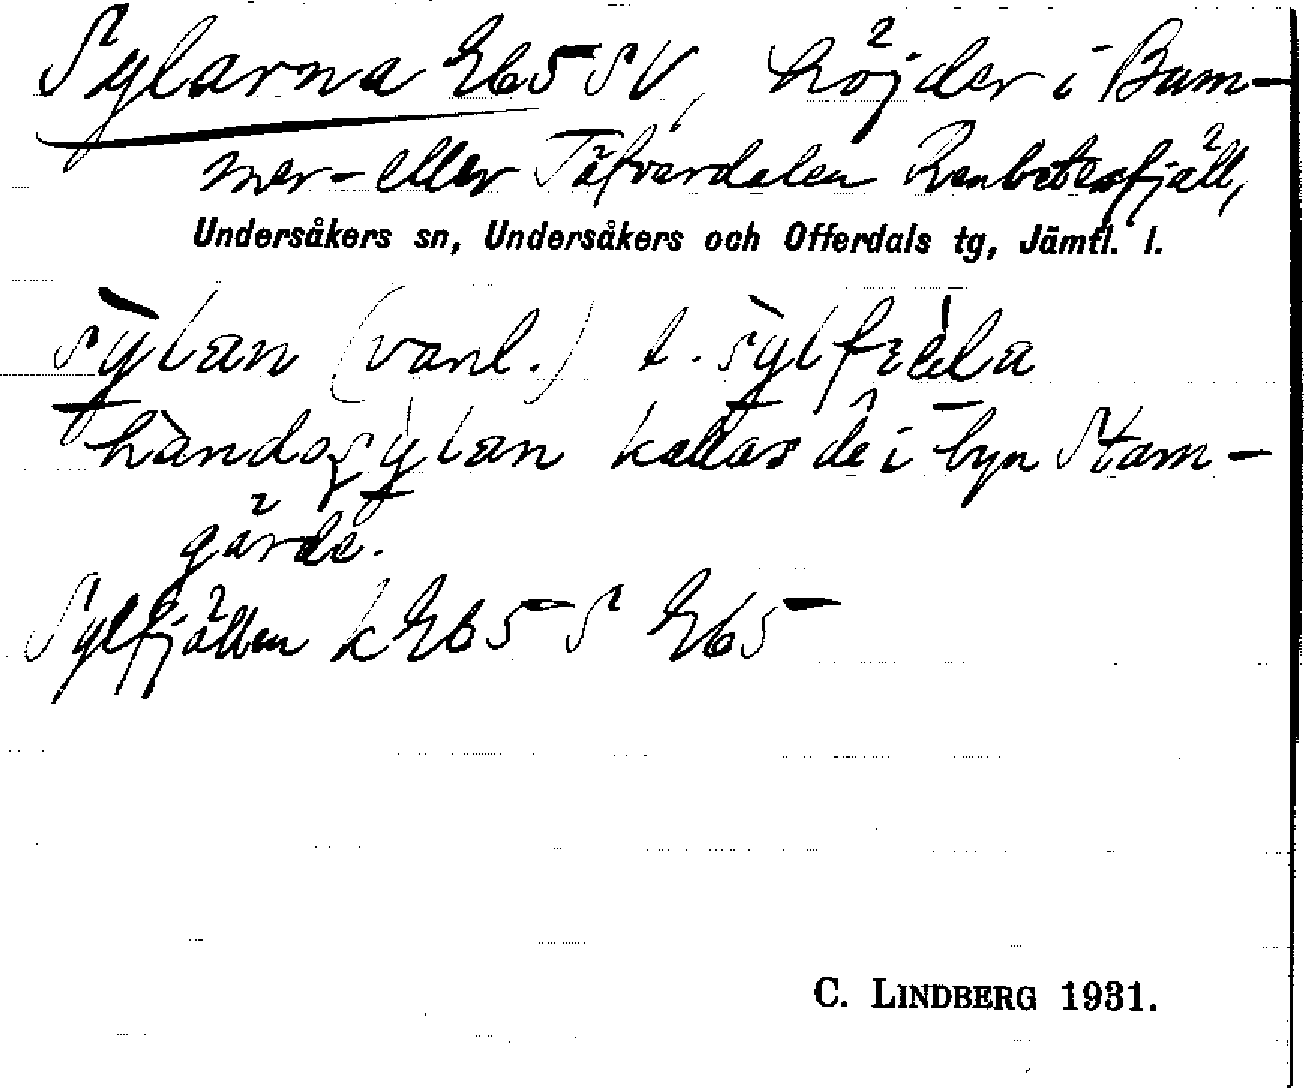 Sylarna Eb5 SV, höjder i Bum-
mer- eller Täfvardalen Renbetesfjäll,
Undersåkers sn, Undersåkers och Offerdals tg, Jämtl. l.
sylan (vanl.) t.
kallas de i byn Stam-
gärde.
Sylfjällen k Eb5 S Eb5
C. LINDBERG 1931.